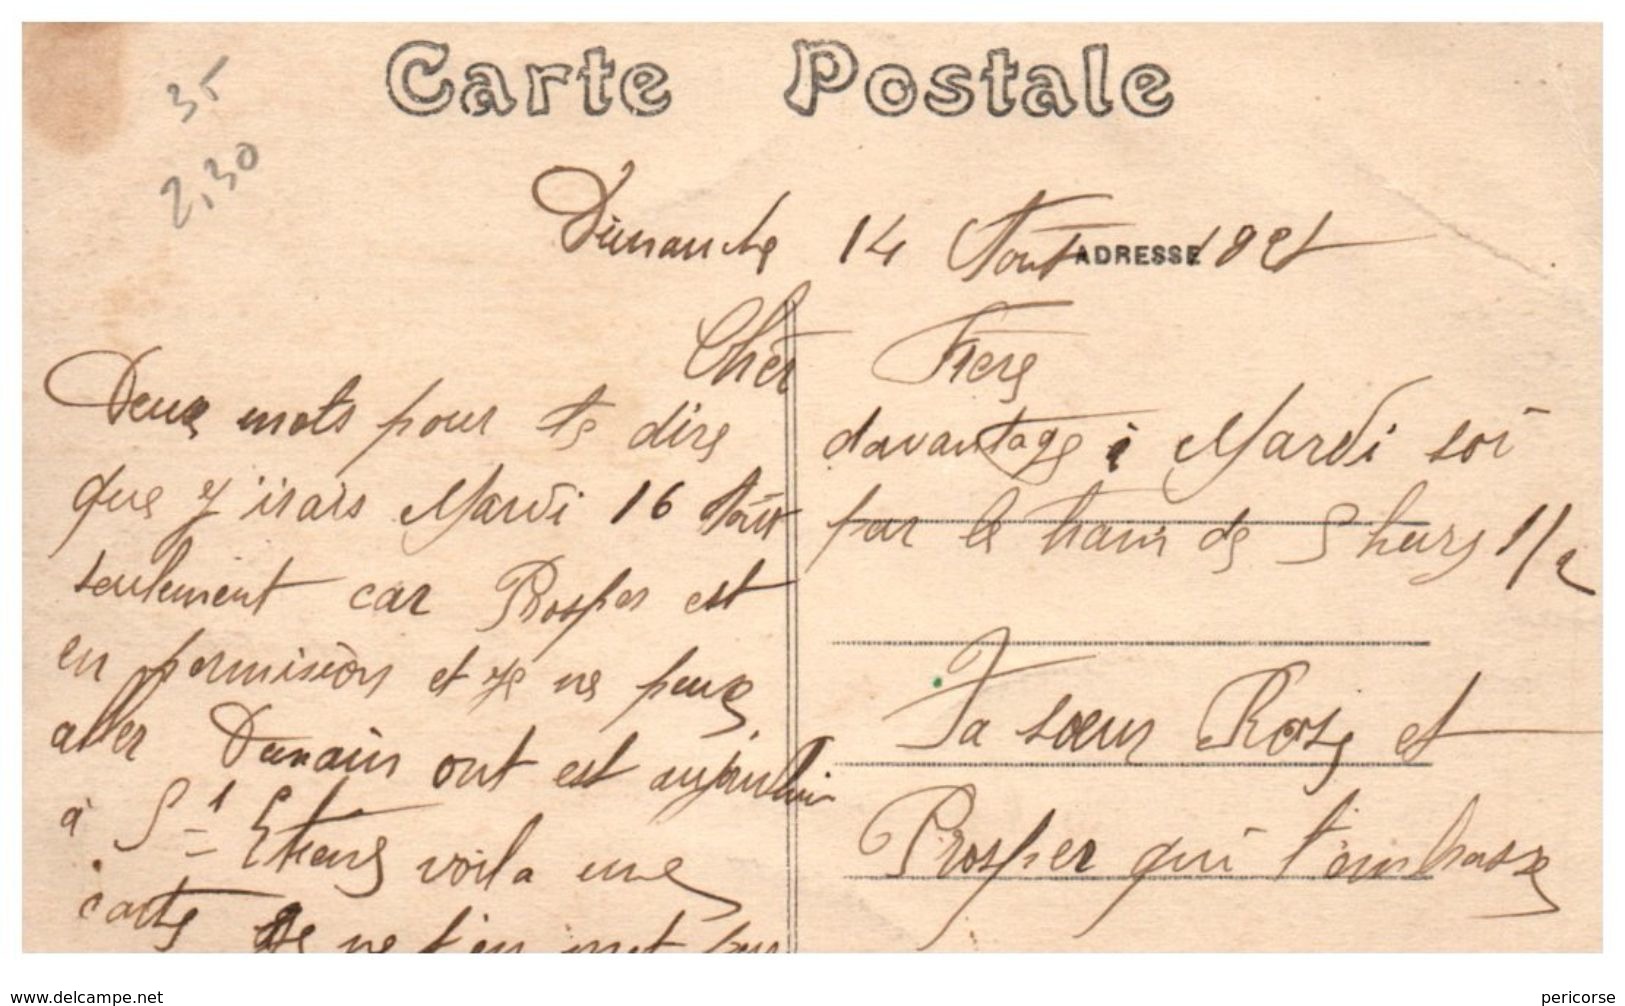 35
2,30
Carte Postale
Dimanche 14 Aout 1921
ADRESSE
Cher Frere
Deux mots pour te dire
que j'irais Mardi 16 Aout
seulement car Prosper est
en permision et je ne peux
aller Demain ont est aujourdhui
à St Etiene voila une
carte je ne t'en met pas
davantage à Mardi soi
par le train de 5 heurs 1/2
Ta sœur Rose et
Prosper qui t'embrasse
www.delcampe.net
pericorse